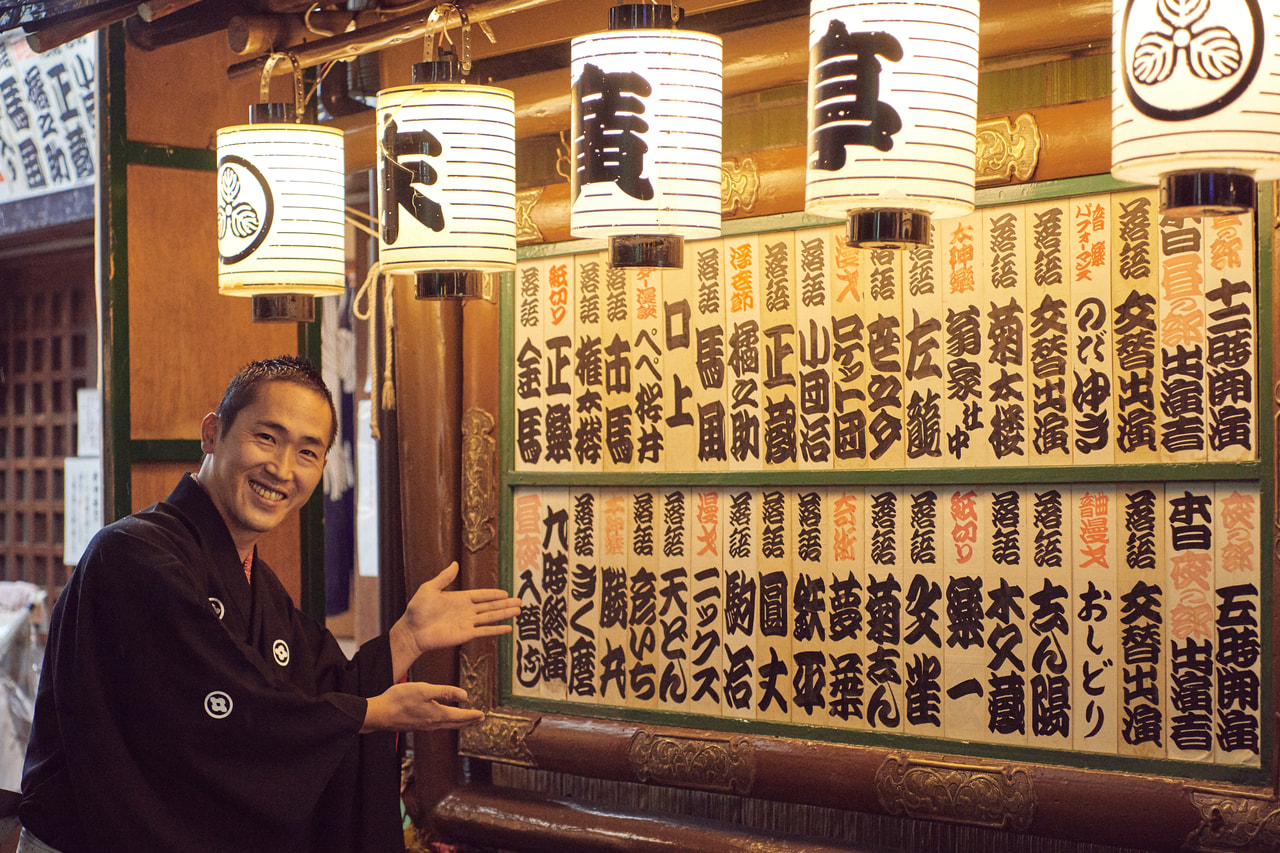 末廣亭
昼の部 十二時開演
本日昼の部出演者
落語 交替出演
音楽パフォーマンス のだゆき
落語 交替出演
落語 菊太楼
太神楽 翁家社中
落語 左龍
落語 世之介
漫才 ロケット団
落語 小団治
落語 正蔵
浮世節 橘之助
落語 馬風
口上
ギター漫談 ペペ桜井
落語 市馬
落語 権太楼
紙切り 正楽
落語 金馬
夜の部 五時開演
本日夜の部出演者
落語 交替出演
音曲漫才 おしどり
落語 志ん陽
落語 木久蔵
紙切り 楽一
落語 文雀
落語 菊志ん
奇術 夢葉
落語 鉄平
落語 圓丈
落語 駒治
漫才 ニックス
落語 天どん
落語 彦いち
太神楽 勝丸
落語 きく麿
九時終演
昼夜入替なし